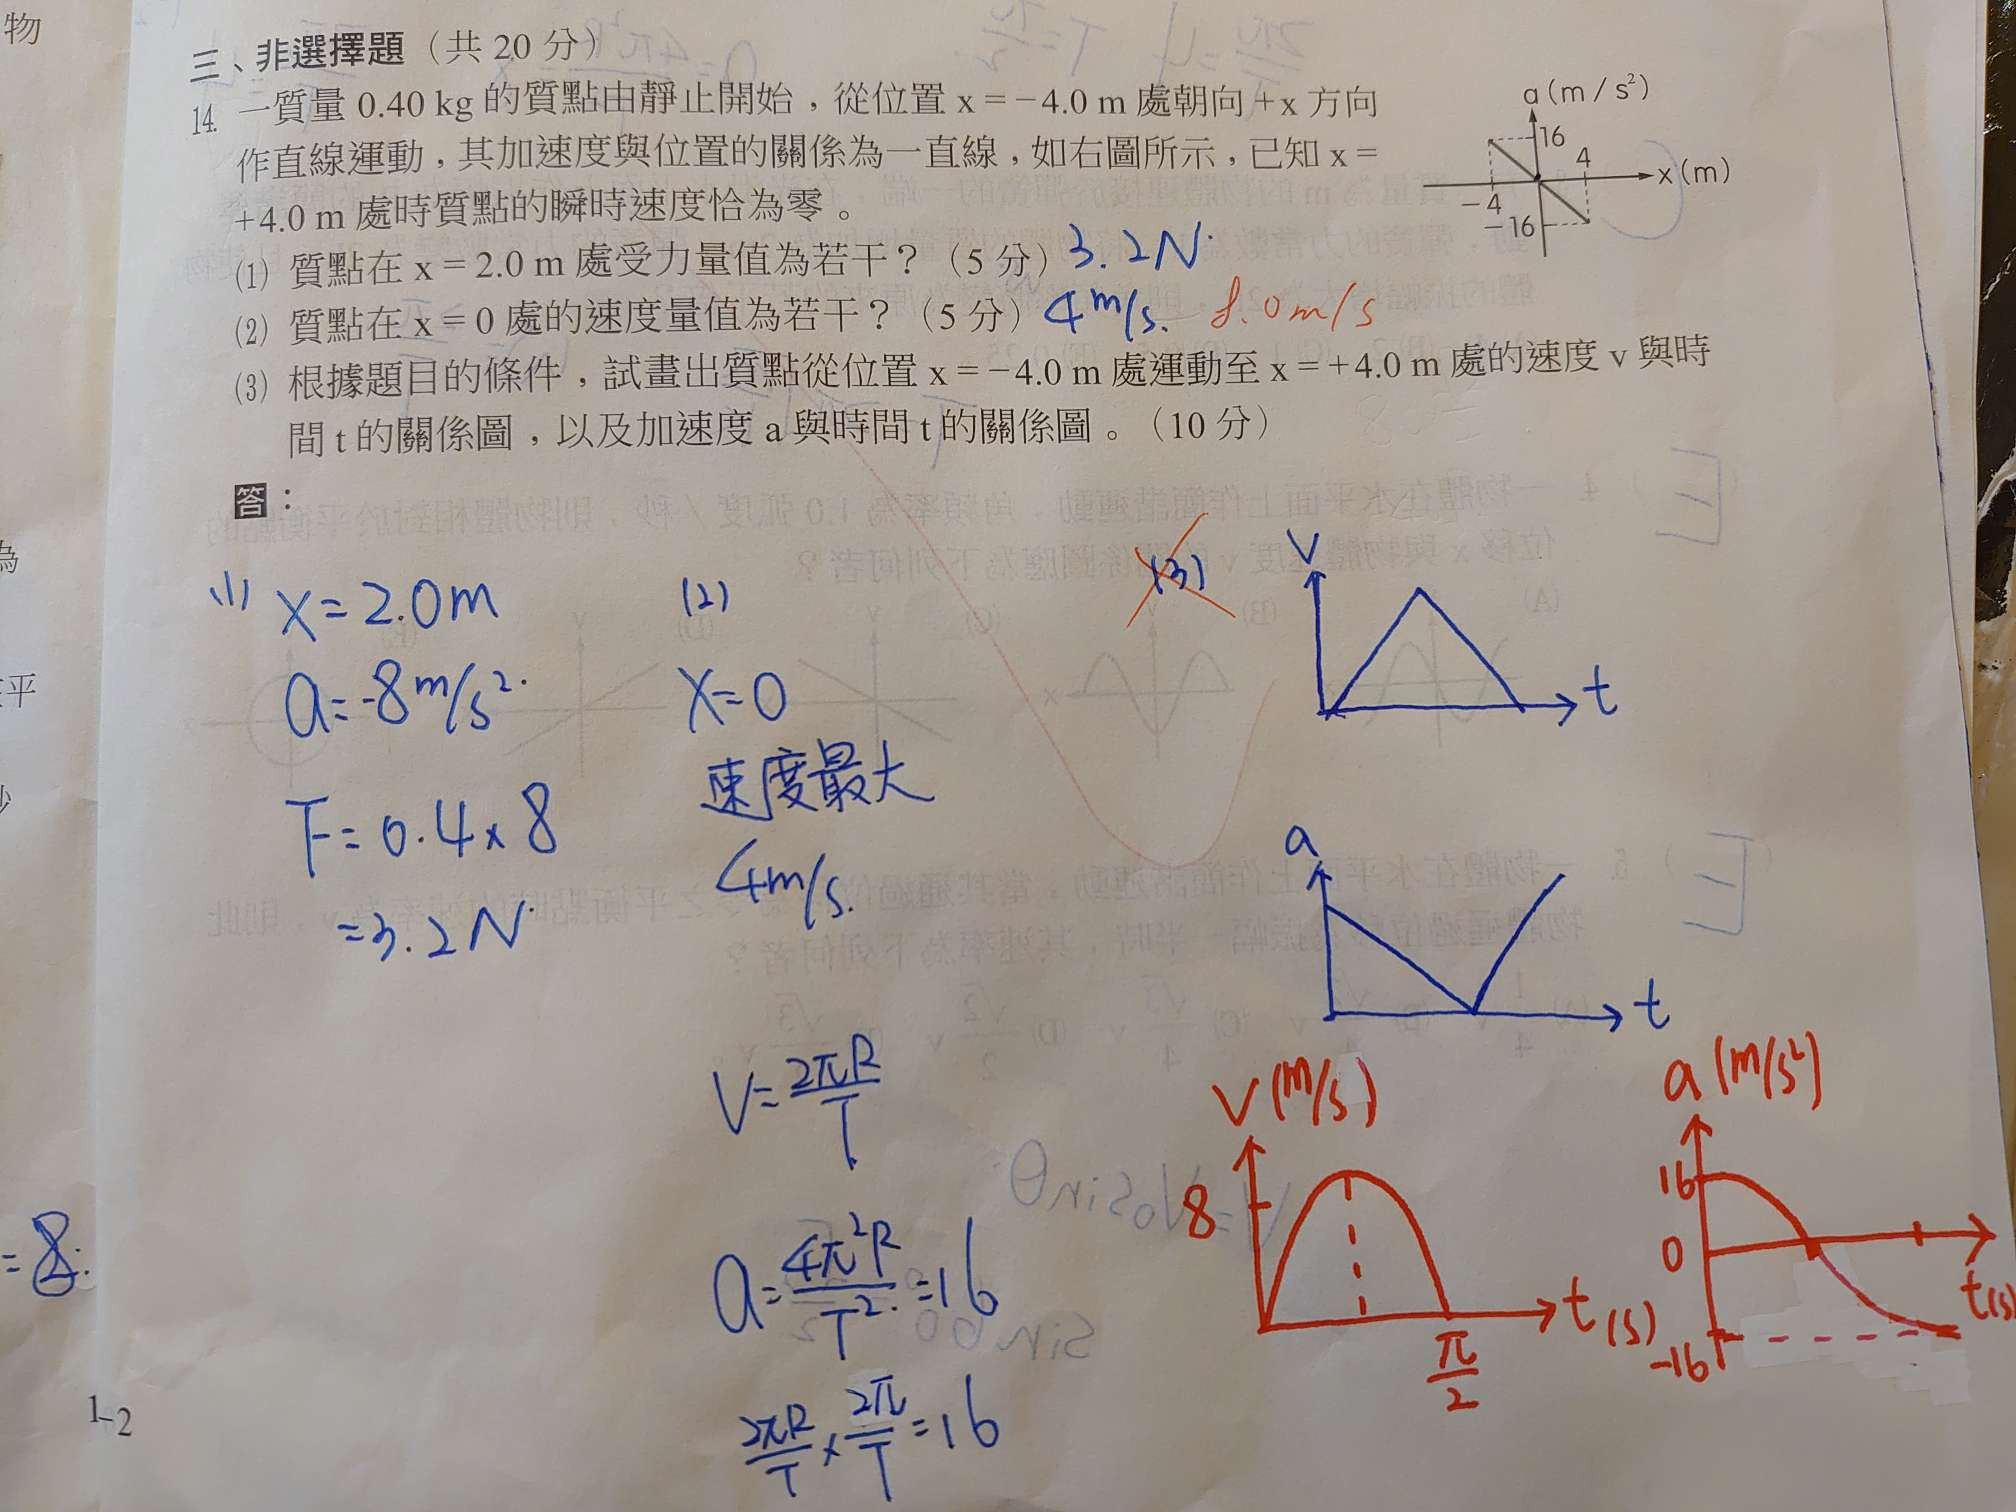 物
三、非選擇題（共 20 分）
14. 一質量 0.40 kg 的質點由靜止開始，從位置 x = −4.0 m 處朝向 +x 方向
作直線運動，其加速度與位置的關係為一直線，如右圖所示，已知 x =
+4.0 m 處時質點的瞬時速度恰為零。
a (m / s²)
16
4
x (m)
−4
−16
(1) 質點在 x = 2.0 m 處受力量值為若干？（5 分）3.2N
(2) 質點在 x = 0 處的速度量值為若干？（5 分）4 m/s. 8.0 m/s
(3) 根據題目的條件，試畫出質點從位置 x = −4.0 m 處運動至 x = +4.0 m 處的速度 v 與時
間 t 的關係圖，以及加速度 a 與時間 t 的關係圖。（10 分）
答：
為
平
(1) x = 2.0m
a = -8 m/s².
F = 0.4 × 8
= 3.2 N
(2)
x = 0
速度最大
4m/s.
V = 2πR/T
a = 4π²R/T² = 16
2πR/T × 2π/T = 16
(3)
V
t
a
t
V (m/s)
8
t (s)
π/2
a (m/s²)
16
0
-16
t(s)
= 8.
1-2